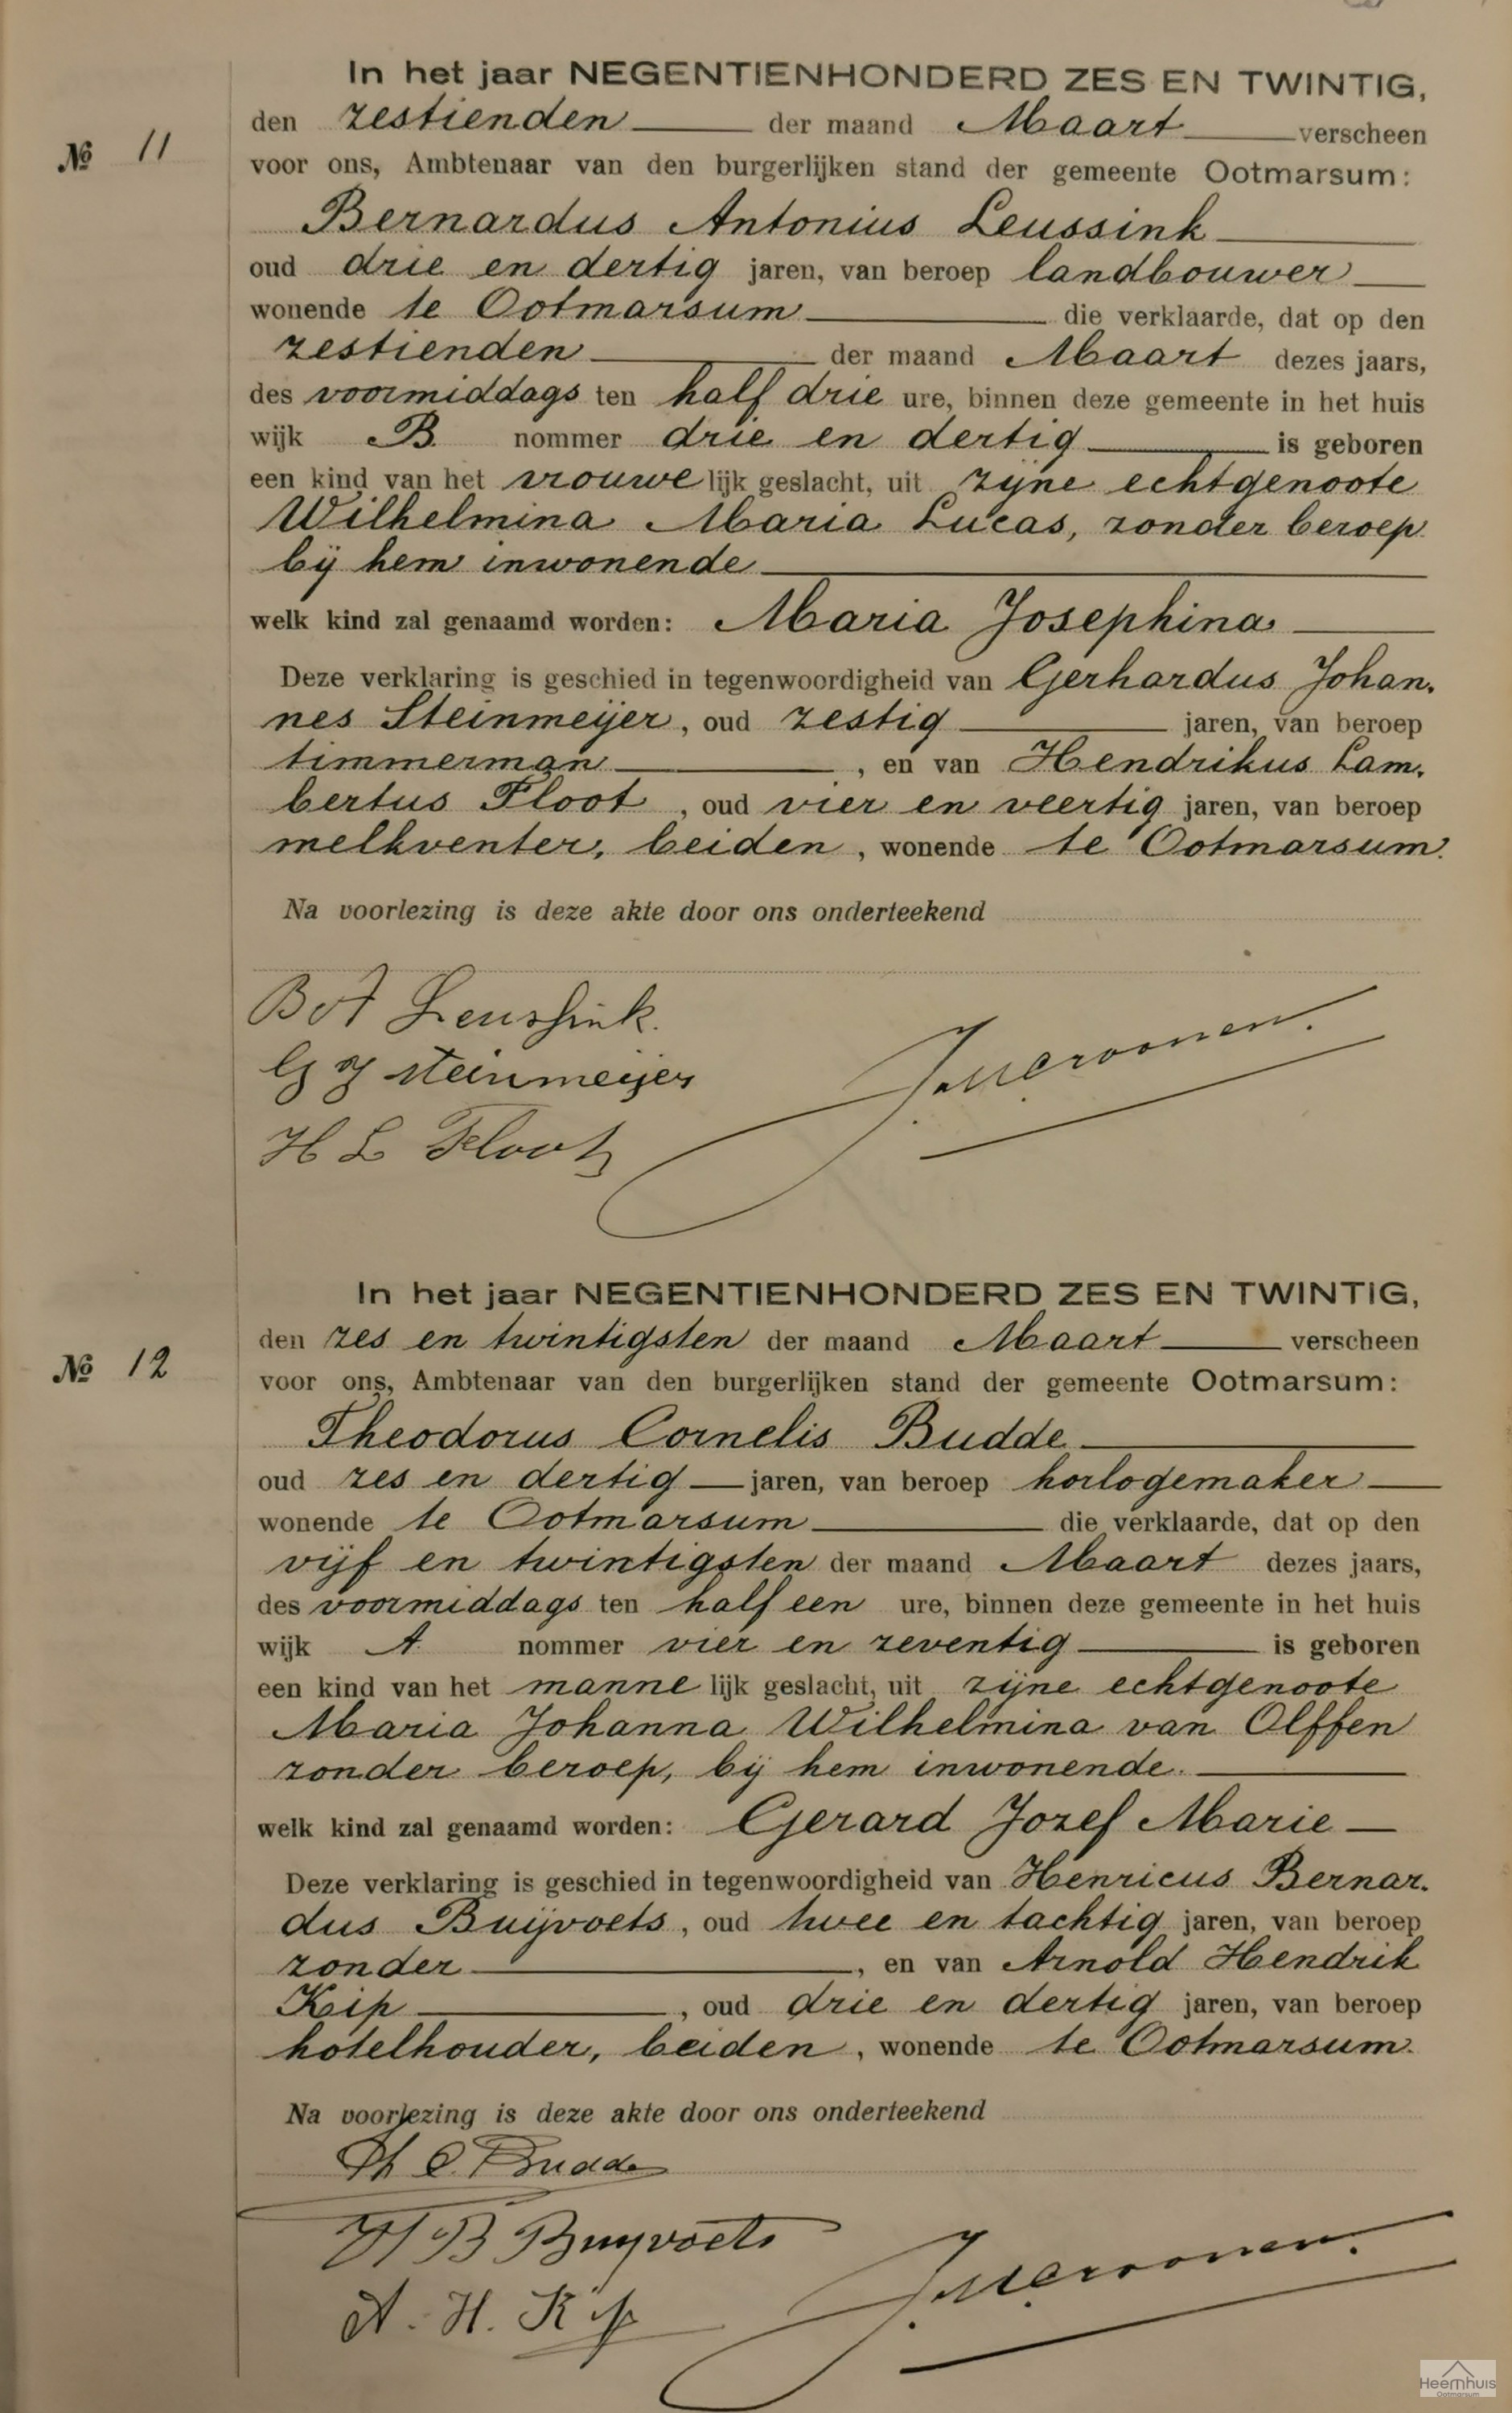 In het jaar NEGENTIENHONDERD ZES EN TWINTIG,
den zestienden der maand Maart verscheen
№ 11
voor ons, Ambtenaar van den burgerlijken stand der gemeente Ootmarsum:
Bernardus Antonius Leussink
oud drie en dertig jaren, van beroep landbouwer
wonende te Ootmarsum die verklaarde, dat op den
zestienden der maand Maart dezes jaars,
des voormiddags ten half drie ure, binnen deze gemeente in het huis
wijk B nommer drie en dertig is geboren
een kind van het vrouwelijk geslacht, uit zijne echtgenoote
Wilhelmina Maria Lucas, zonder beroep
bij hem inwonende
welk kind zal genaamd worden: Maria Josephina
Deze verklaring is geschied in tegenwoordigheid van Gerhardus Johan-
nes Steinmeijer, oud zestig jaren, van beroep
timmerman, en van Hendrikus Lam-
bertus Floot, oud vier en veertig jaren, van beroep
melkventer, beiden, wonende te Ootmarsum.
Na voorlezing is deze akte door ons onderteekend
B A Leussink.
G J Steinmeijer
H L Floot
In het jaar NEGENTIENHONDERD ZES EN TWINTIG,
den zes en twintigsten der maand Maart verscheen
№ 12
voor ons, Ambtenaar van den burgerlijken stand der gemeente Ootmarsum:
Theodorus Cornelis Budde
oud zes en dertig jaren, van beroep horlogemaker
wonende te Ootmarsum die verklaarde, dat op den
vijf en twintigsten der maand Maart dezes jaars,
des voormiddags ten half een ure, binnen deze gemeente in het huis
wijk A nommer vier en zeventig is geboren
een kind van het mannelijk geslacht, uit zijne echtgenoote
Maria Johanna Wilhelmina van Olffen
zonder beroep, bij hem inwonende.
welk kind zal genaamd worden: Gerard Jozef Marie
Deze verklaring is geschied in tegenwoordigheid van Henricus Bernar-
dus Buijvoets, oud twee en tachtig jaren, van beroep
zonder, en van Arnold Hendrik
Kip, oud drie en dertig jaren, van beroep
hotelhouder, beiden, wonende te Ootmarsum.
Na voorlezing is deze akte door ons onderteekend
Th C. Budde
H B Buyvoets
A. H. Kip
Heemhuis
Ootmarsum